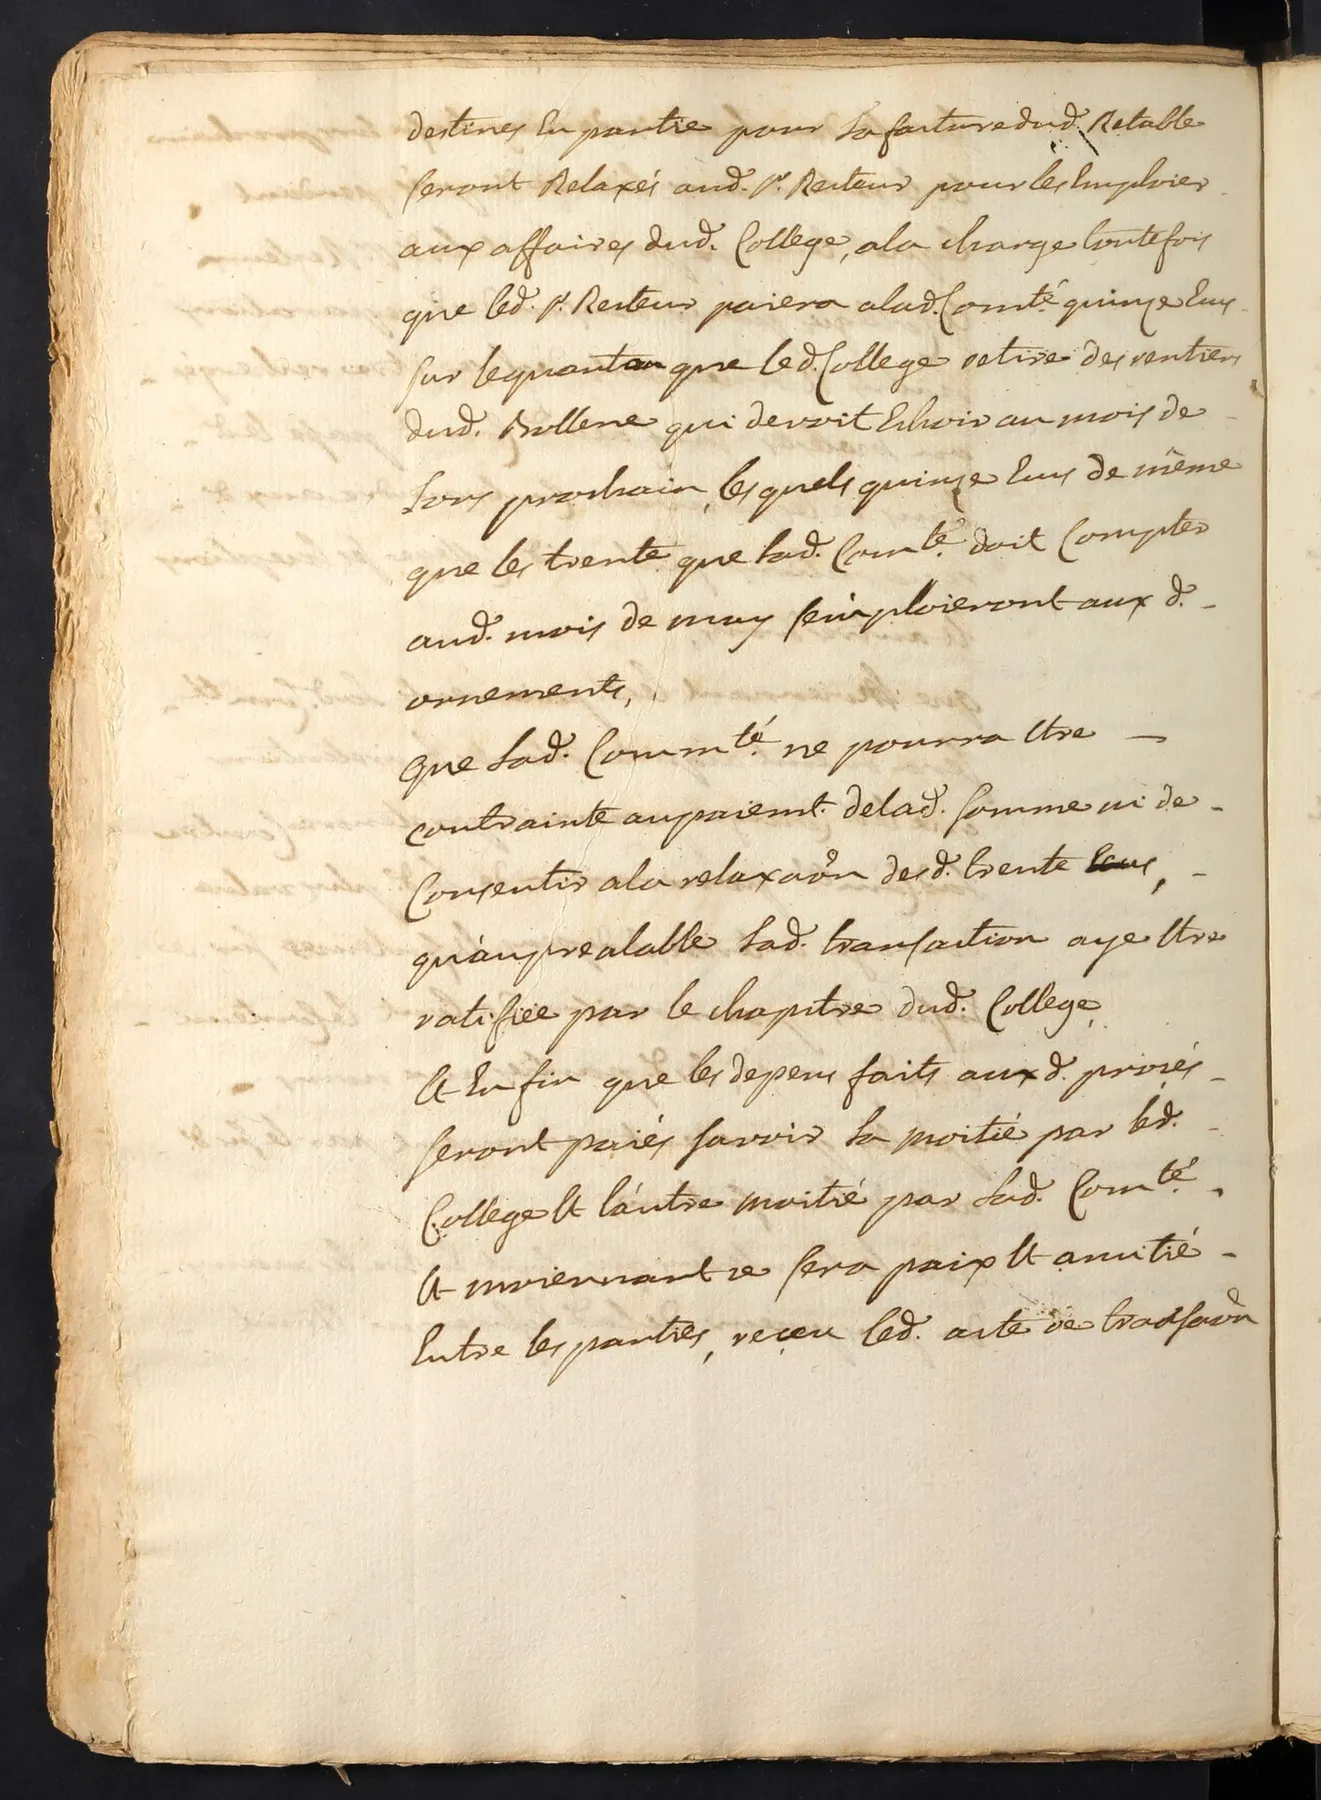 destines En partie pour La facture dud. Retable
seront Relaxés aud. Sr. Recteur pour les Emploier
aux affaires dud. College, ala charge toutefois
que led. Sr. Recteur paiera alad. Comté. quinze Eus
sur le quantan que led. College retire des rentiers
dud. Bollene qui devoit Echoir au mois de
Lors prochain, les quels quinze Eus de même
que les trente que Lad. Comté. doit Compter
aud. mois de may s'emploieront aux d.
ornements,
que Lad. Commté. ne pourra Etre
contrainte au paiemt. delad. somme ni de
Consentir ala relaxaôn desd. trente Ecus,
qu'au prealable Lad. transaction aye Etre
ratifiée par le chapitre dud. College,
Et En fin que les depens faits aux d. procés
seront paiés savoir La moitié par led.
College Et L'autre moitié par Lad. Comté.
Et moiennant ce sera paix Et amitié
Entre les parties, reçeu led. acte de transaôn